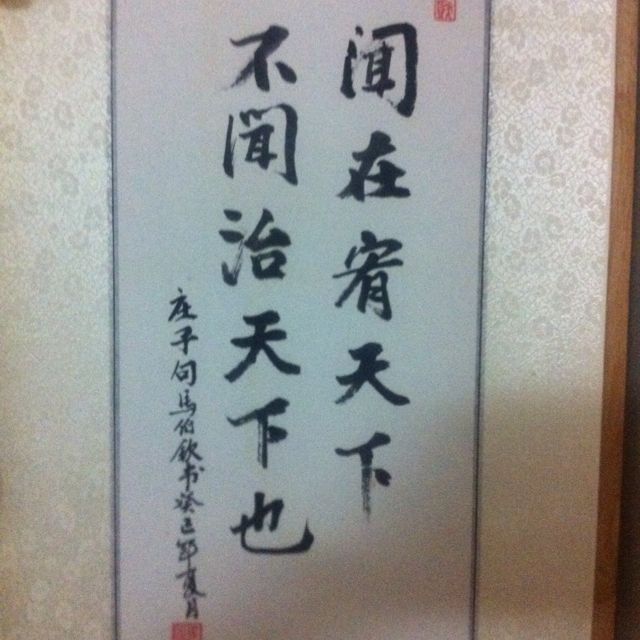 闻在宥天下
不闻治天下也
庄子句马伯钦书癸巳夏月